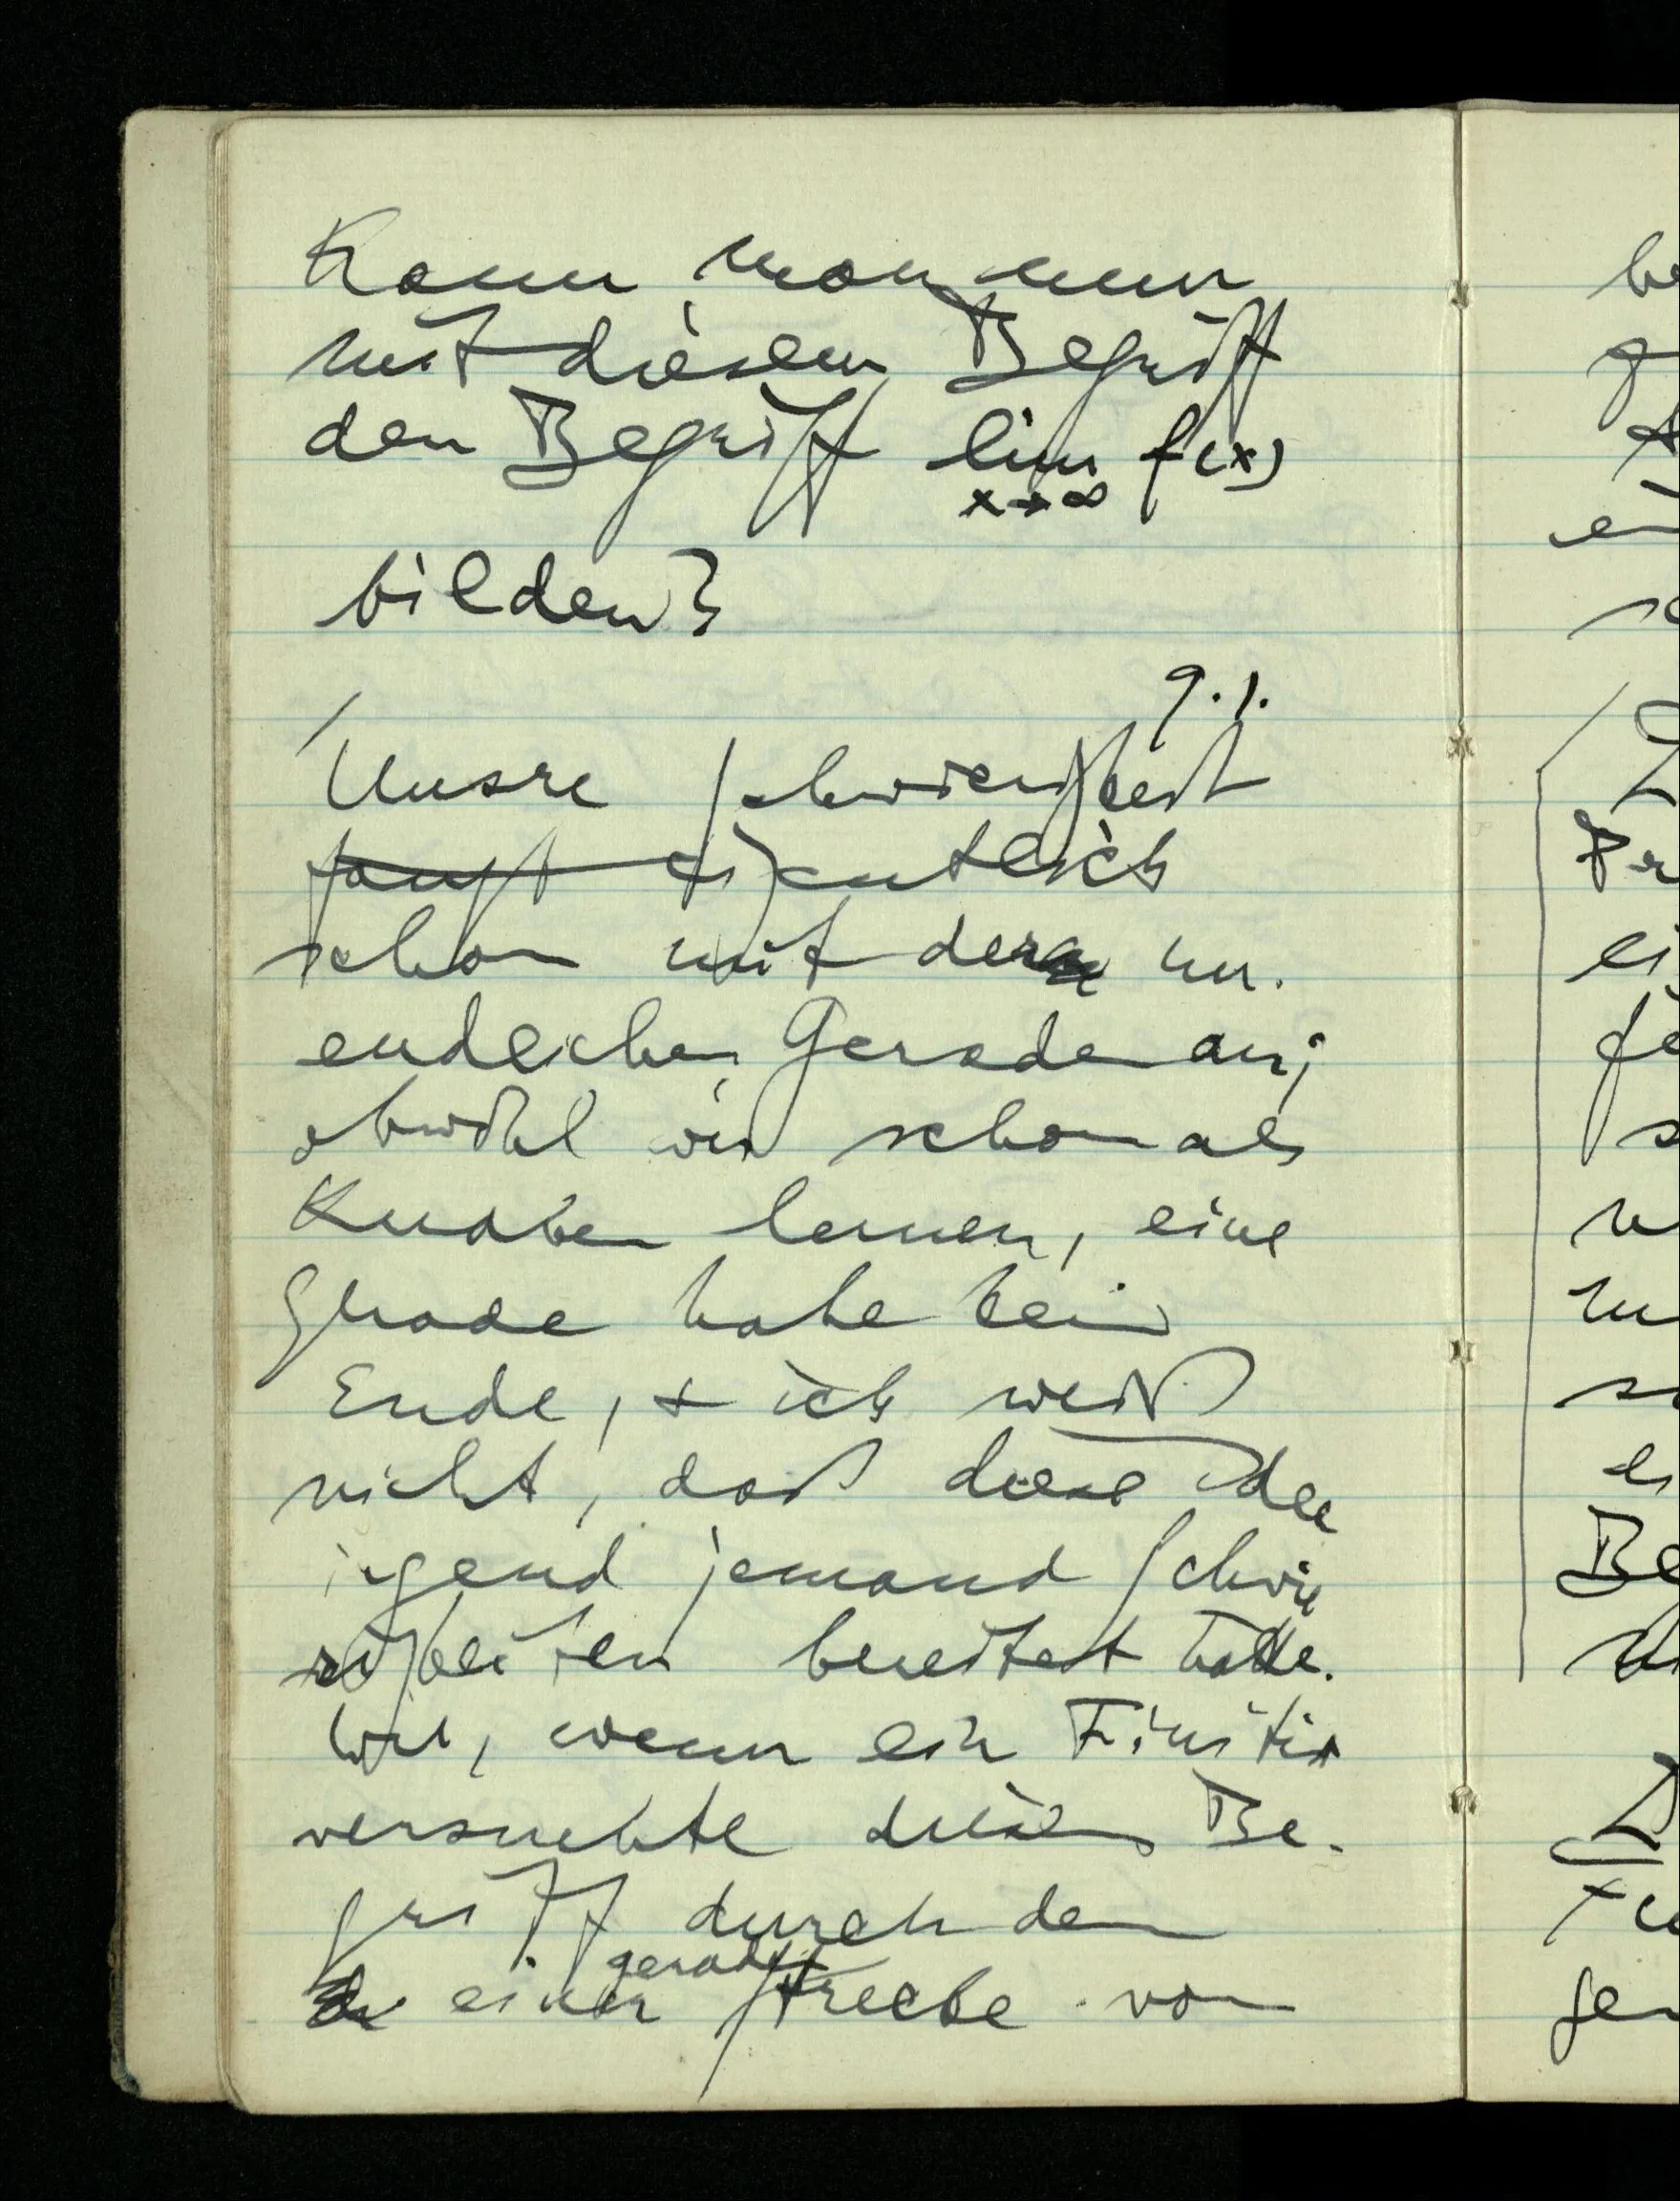 Kann man nun
mit diesem Begriff
den Begriff lim f(x)
x→∞
bilden?
9.1.
Unsre Schwierigkeit
fängt eigentlich
schon mit der un-
endlichen Geraden an;
obwohl wir schon als
Knaben lernen, eine
Gerade habe kein
Ende, + ich weiß
nicht, daß diese Idee
irgend jemand Schwie
rigkeiten bereitet hätte.
Wie, wenn ein Finitist
versuchte diesen Be-
griff durch den
geraden
einer Strecke von